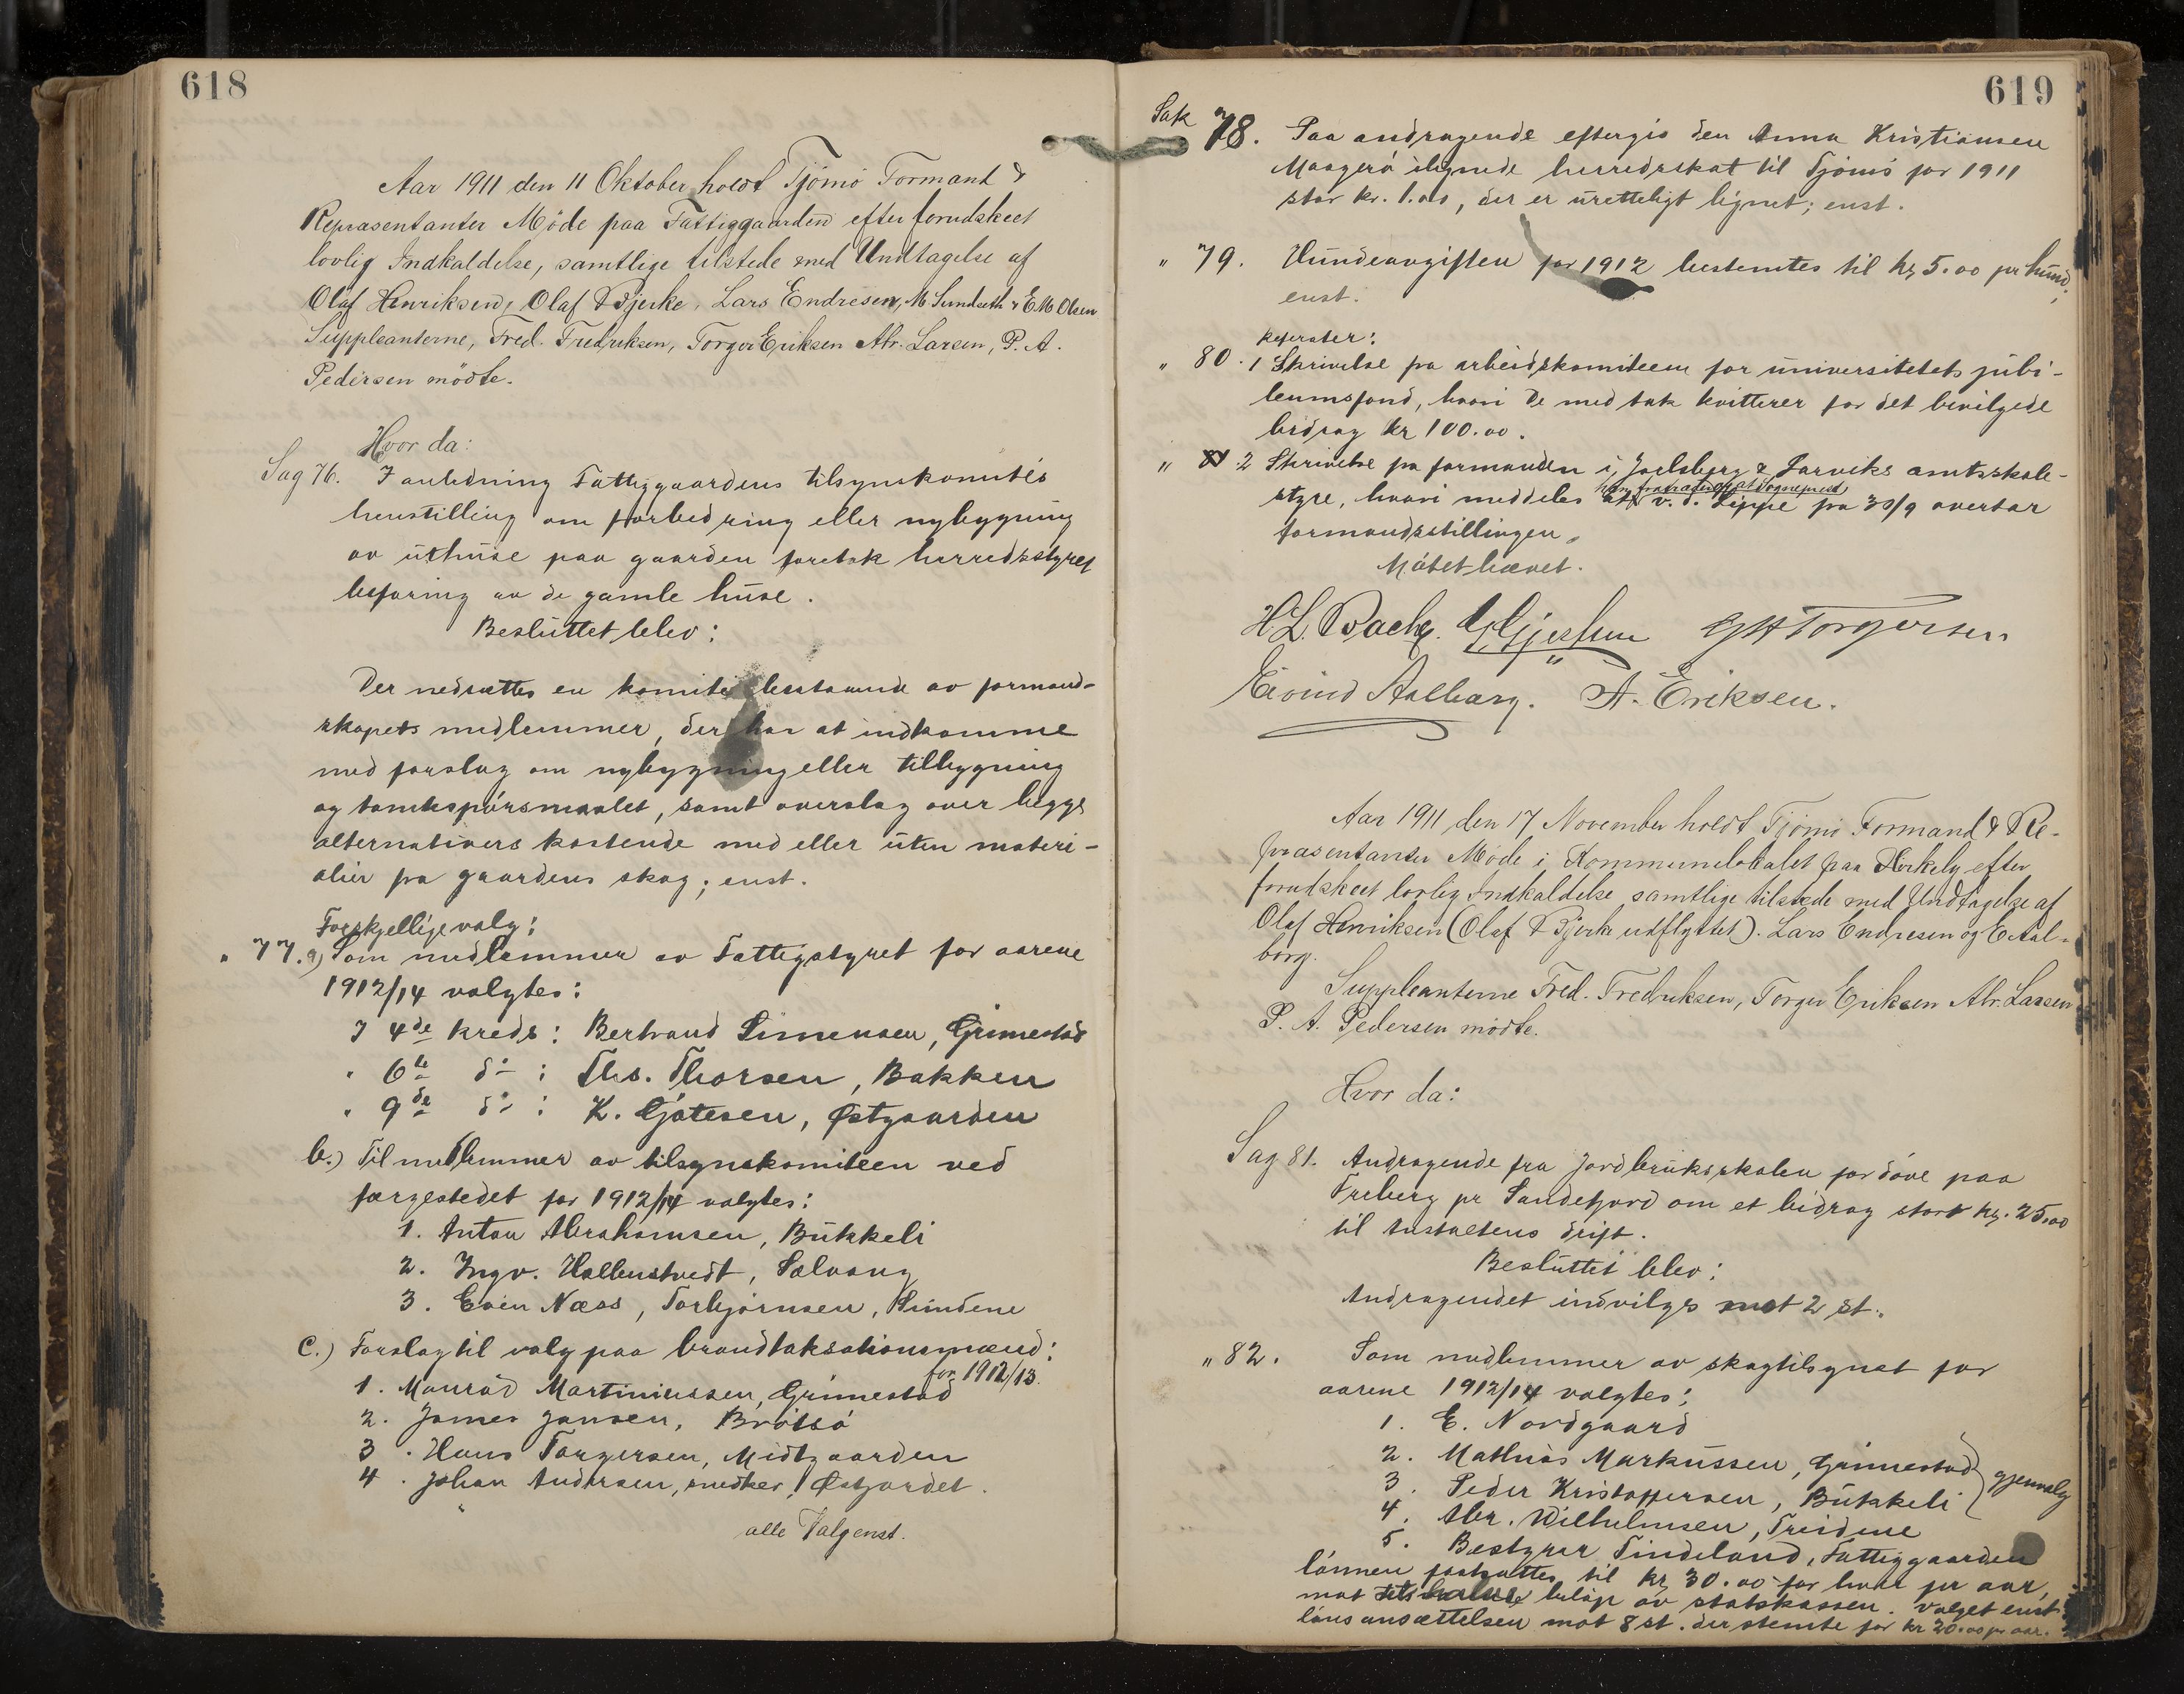 618
Aar 1911 den 11 Oktober holdt Tjømø Formand &
Repræsentanter Møde paa Fattiggaarden efter forudskeet
lovlig Indkaldelse, samtlige tilstede med Undtagelse af
Olaf Henriksen, Olaf Bjerke, Lars Endresen, M Sundseth & E M Olsen
Suppleanterne, Fred. Fredriksen, Torger Eriksen Abr. Larsen, P. A.
Pedersen mødte.
Hvor da:
Sag 76. I anledning Fattiggaardens tilsynskomités
henstilling om forbedring eller nybygning
av uthuse paa gaarden foretok herredsstyret
befaring av de gamle huse.
Besluttet blev:
Der nedsættes en komite bestaaende av formand-
skapets medlemmer, der har at indkomme
med forslag om nybygning eller tilbygning
og tomtespørsmaalet, samt overslag over begge
alternativers kostende med eller uten materi-
alier fra gaardens skog; enst.
Forskjellige valg:
" 77. a) Som medlemmer av Fattigstyret for aarene
1912/14 valgtes:
I 4de kreds: Bertrand Simensen, Grimestad
" 6te do : Ths. Thorsen, Bakken
" 9de do : K. Gjøtesen, Østgaarden
b.) Til medlemmer av tilsynskomiteen ved
færgestedet for 1912/14 valgtes:
1. Anton Abrahamsen, Bukkeli
2. Ingv. Hallenstvedt, Solvang
3. Even Næss, Torbjørnsen, Hundene
c.) Forslag til valg paa brandtaksationsmænd:
for 1912/13.
1. Monrad Martiniussen, Grimestad
2. James Jansen, Brøtsø
3. Hans Torgersen, Midtgaarden
4. Johan Andersen, snedker, Østjordet.
alle Valg enst.
619
Sak 78. Paa andragende eftergis den Anna Kristiansen
Maagerø ilignede herredsskat til Tjømø for 1911
stor kr. 1.00, der er uretteligt lignet; enst.
" 79. Hundeavgiften for 1912 bestemtes til kr 5.00 pr hund,
enst.
Referater:
" 80. 1 Skrivelse fra arbeidskomiteen for universitetets jubi-
leumsfond, hvori de med tak kvitterer for det bevilgede
bidrag kr 100.00.
" 2 Skrivelse fra formanden i Jarlsberg & Larviks amtsskole-
styre, hvori meddeles v. d. Lippe fra 30/9 overtar
formandsstillingen.
Møtet hævet.
H L Bache. G H Torgersen
Eivind Aalborg. A. Eriksen.
Aar 1911 den 17 November holdt Tjømø Formand & Re-
præsentanter Møde i Kommunelokalet paa Virkelg efter
forudskeet lovlig Indkaldelse samtlige tilstede med Undtagelse af
Olaf Henriksen (Olaf Bjerke udflyttet). Lars Endresen og E Aal-
borg.
Suppleanterne Fred. Fredriksen, Torger Eriksen Abr. Larsen
P. A. Pedersen mødte.
Hvor da:
Sag 81. Andragende fra Jordbruksskolen for døve paa
Freberg pr Sandefjord om et bidrag stort kr. 25.00
til Anstaltens drift.
Besluttet blev:
Andragendet indvilges mot 2 st.
" 82. Som medlemmer av skogtilsynet for
aarene 1912/14 valgtes:
1. E. Nordgaard
2. Mathias Markussen, Grimestad
3. Peder Kristoffersen, Bukkeli
gjenvalg
4. Abr. Wilhelmsen, Treidene
5. Bestyrer Tindeland, Fattiggaarden
lønnen fastsattes til kr 30.00 for hver pr aar,
mot beløp av statskassen. valget enst.
lønsansættelsen mot 8 st. der stemte for kr 20.00 pr aar.